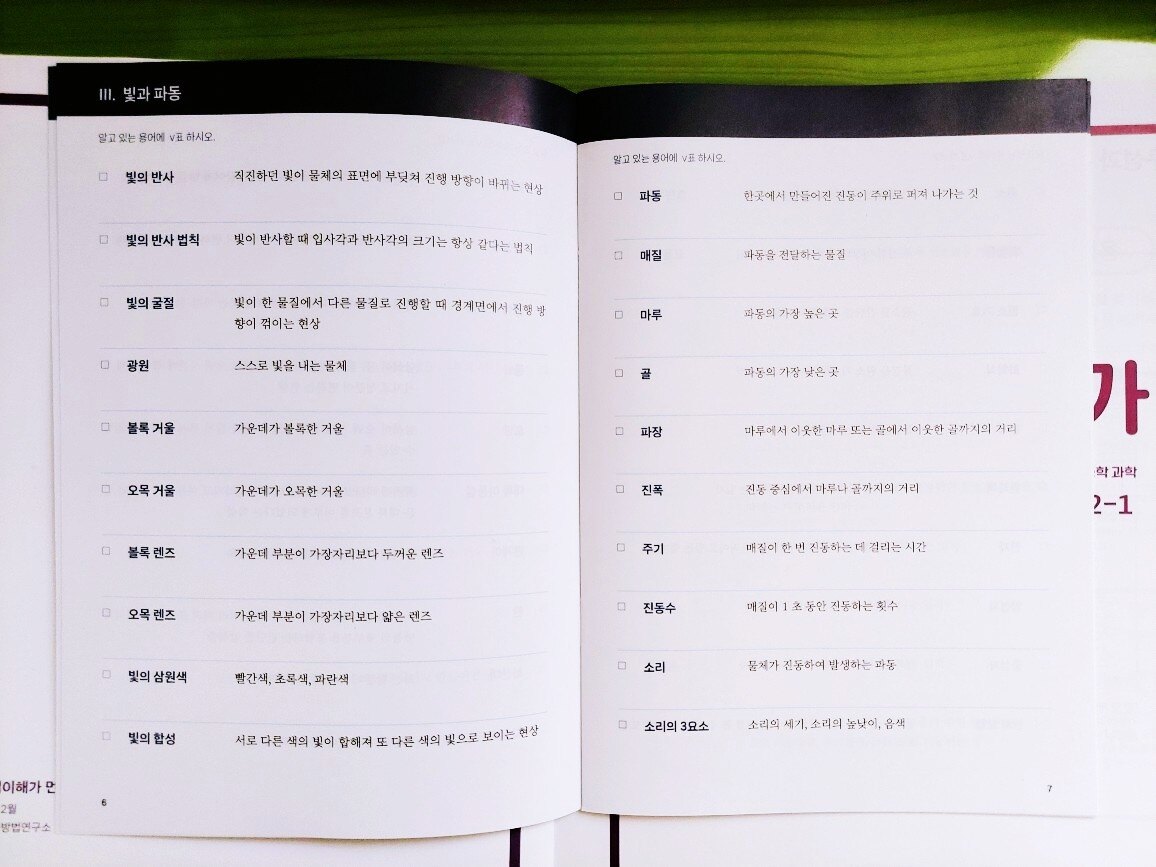 III. 빛과 파동
알고 있는 용어에 v표 하시오.
빛의 반사 직진하던 빛이 물체의 표면에 부딪쳐 진행 방향이 바뀌는 현상
빛의 반사 법칙 빛이 반사할 때 입사각과 반사각의 크기는 항상 같다는 법칙
빛의 굴절 빛이 한 물질에서 다른 물질로 진행할 때 경계면에서 진행 방
향이 꺾이는 현상
광원 스스로 빛을 내는 물체
볼록 거울 가운데가 볼록한 거울
오목 거울 가운데가 오목한 거울
볼록 렌즈 가운데 부분이 가장자리보다 두꺼운 렌즈
오목 렌즈 가운데 부분이 가장자리보다 얇은 렌즈
빛의 삼원색 빨간색, 초록색, 파란색
빛의 합성 서로 다른 색의 빛이 합해져 또 다른 색의 빛으로 보이는 현상
6
알고 있는 용어에 v표 하시오.
파동 한곳에서 만들어진 진동이 주위로 퍼져 나가는 것
매질 파동을 전달하는 물질
마루 파동의 가장 높은 곳
골 파동의 가장 낮은 곳
파장 마루에서 이웃한 마루 또는 골에서 이웃한 골까지의 거리
진폭 진동 중심에서 마루나 골까지의 거리
주기 매질이 한 번 진동하는 데 걸리는 시간
진동수 매질이 1초 동안 진동하는 횟수
소리 물체가 진동하여 발생하는 파동
소리의 3요소 소리의 세기, 소리의 높낮이, 음색
7
가
학 과학
2-1
이해가 먼
2월
방법연구소